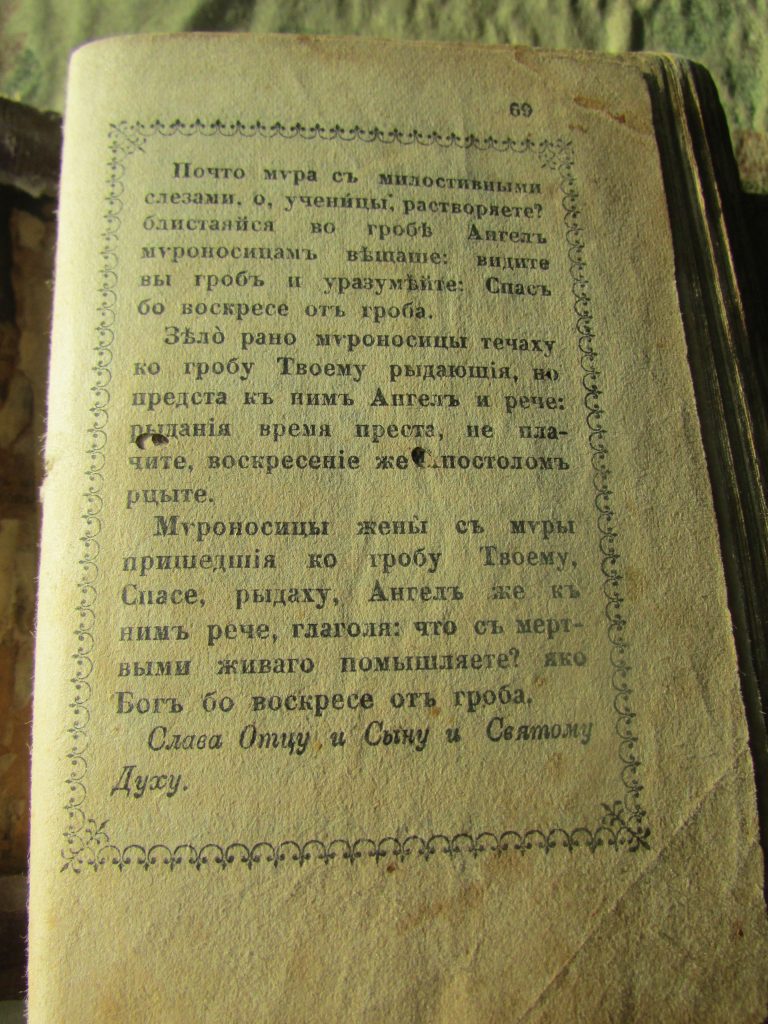 69
Почто мѵра съ милостивными
слезами, о, учени́цы, растворяете?
блистаяйся во гробѣ Ангелъ
мѵроносицамъ вѣщаше: видите
вы гробъ и уразумѣйте: Спасъ
бо воскресе отъ гроба.
Зѣло̀ рано мѵроносицы течаху
ко гробу Твоему рыдающія, но
предста къ нимъ Ангелъ и рече:
рыданія время преста, не пла-
чите, воскресеніе же постоломъ
рцыте.
Мѵроносицы жены̀ съ мѵры
пришедшія ко гробу Твоему,
Спасе, рыдаху, Ангелъ же къ
нимъ рече, глаголя: что съ мерт-
выми живаго помышляете? яко
Богъ бо воскресе отъ гроба.
Слава Отцу и Сыну и Святому
Духу.